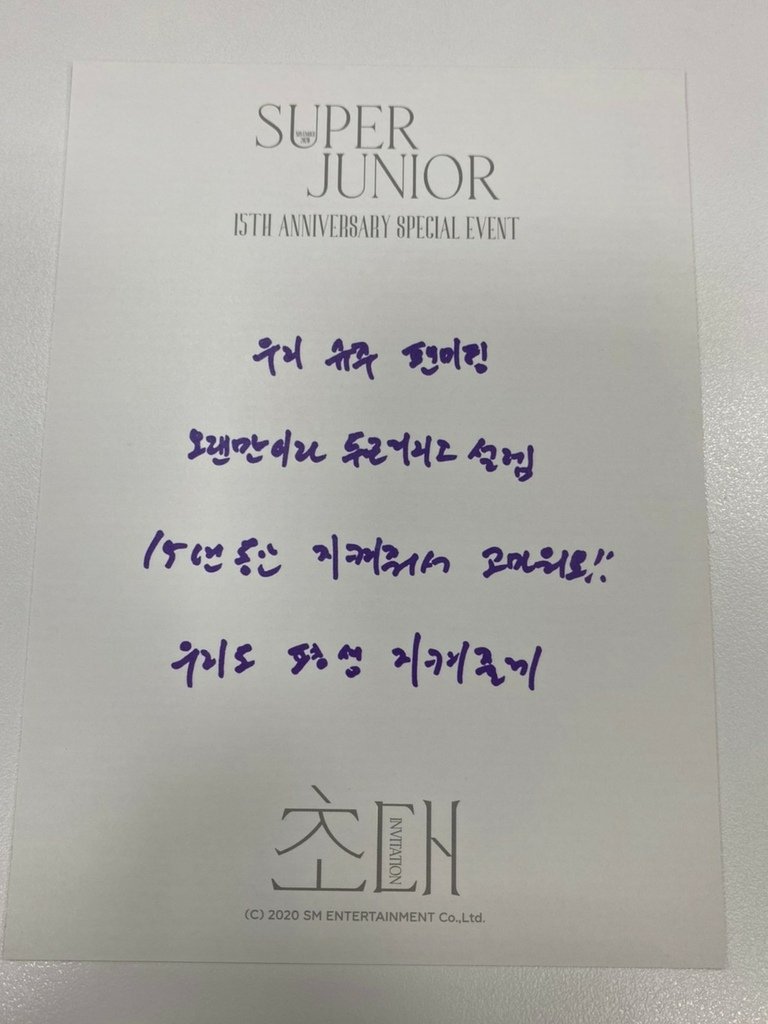 SUPER
NOVEMBER
2020
JUNIOR
15TH ANNIVERSARY SPECIAL EVENT
우리 슈주 팬미팅
오랜만이라 두근거리고 설렘
15년 동안 지켜줘서 고마워요!!
우리도 평생 지켜줄게
초대
INVITATION
(C) 2020 SM ENTERTAINMENT Co.,Ltd.